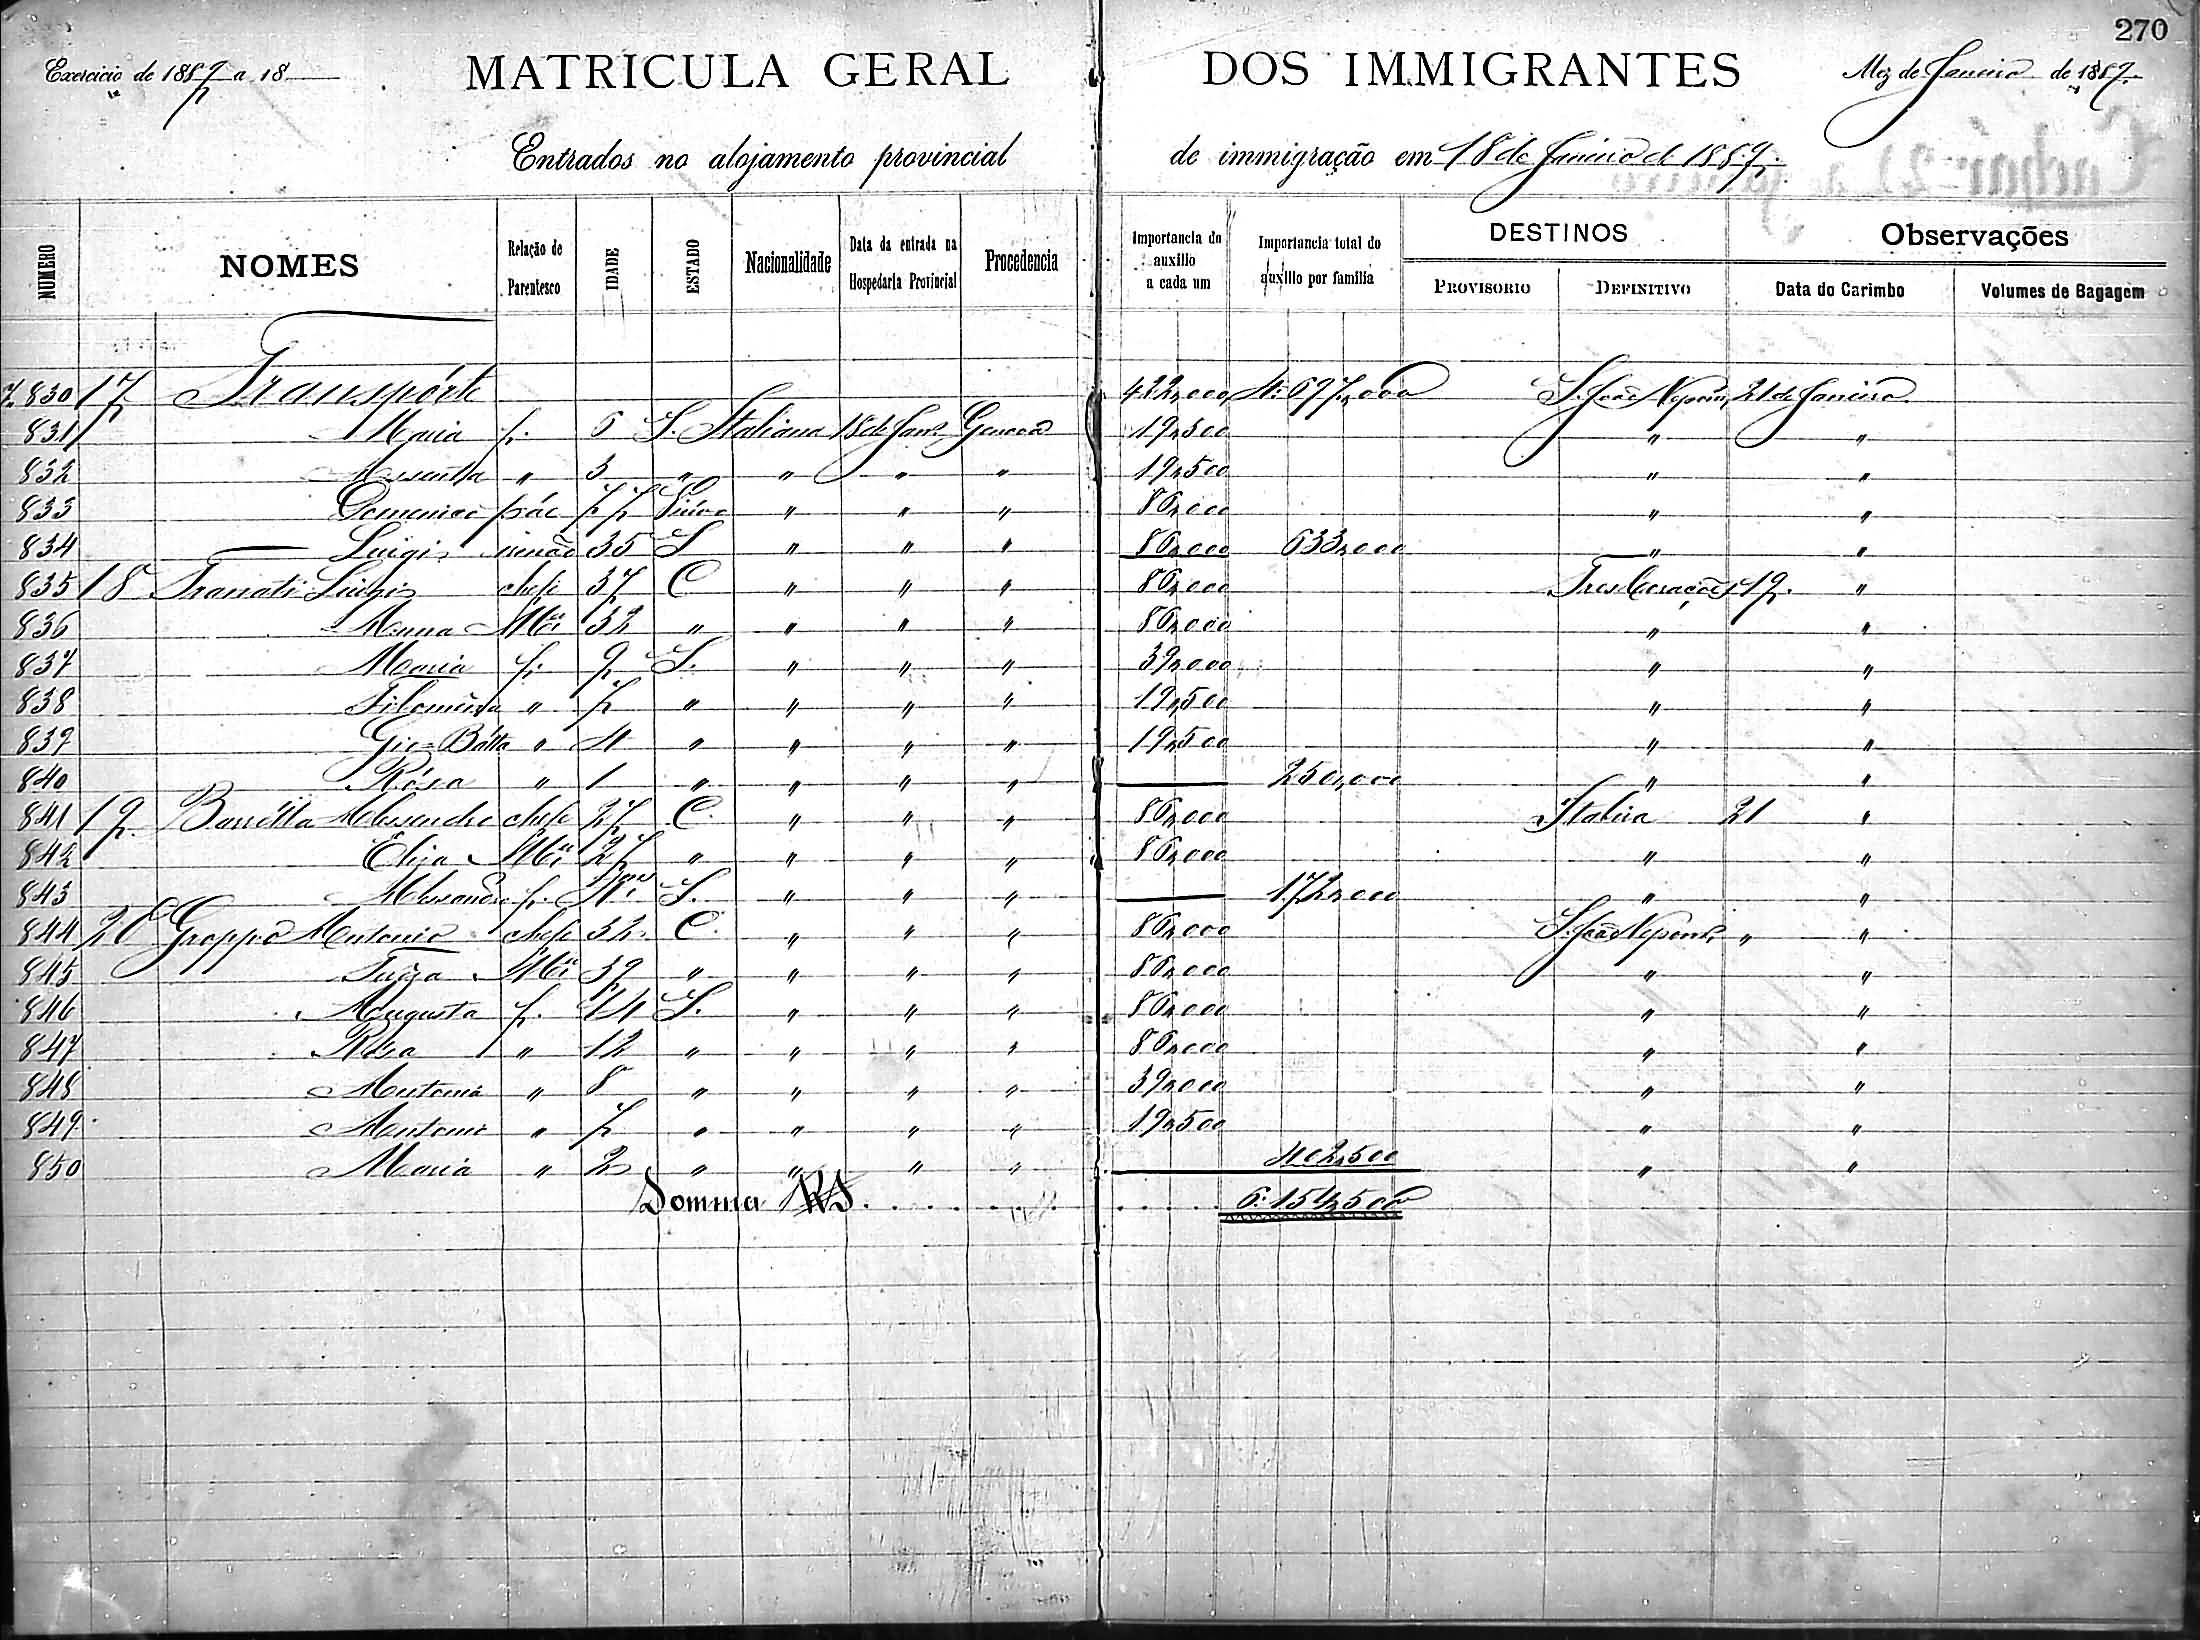 270
Exercicio de 1889 a 18
MATRICULA GERAL DOS IMMIGRANTES
Mez de Janeiro de 1889.
Entrados no alojamento provincial de immigração em 18 de Janeiro de 1889.
NUMERO NOMES Relação de Parentesco IDADE ESTADO Nacionalidade Data da entrada na Hospedaria Provincial Procedencia Importancia do auxilio a cada um Importancia total do auxilio por familia DESTINOS PROVISORIO DEFINITIVO Observações Data do Carimbo Volumes de Bagagem
830 17 Transporte 422,000 4:697,000 S. João Nepom. 21 de Janeiro
831 Maria f. 6 S. Italiana 18 de Jan. Genova 19,500 " "
832 " 3 " " " " 19,500 " "
833 Domenico páe 77 Viuvo " " " 86,000 " "
834 Luigi irmão 35 S " " " 86,000 633,000 " "
835 18 Luigi chefe 37 C " " " 86,000 Tres Corações 19. "
836 Anna Mer 32 " " " " 86,000 " "
837 Maria f. 9 S. " " " 39,000 " "
838 Filomena " 7 " " " " 19,500 " "
839 Gio-Batta " 4 " " " " 19,500 " "
840 Rosa " 1 " " " " 250,000 " "
841 19. Alessandro chefe 27 C. " " " 86,000 Itabira 21 "
842 Eliza Mer 27 " " " " 86,000 " "
843 Alessandro f. S. " " " 172,000 " "
844 20 Groppo Antonio chefe 32 C. " " " 86,000 S. João Nepom. " "
845 Mer 39 " " " " 86,000 " "
846 Augusta f. 14 S. " " " 86,000 " "
847 Rosa " 12 " " " " 86,000 " "
848 Antonia " 8 " " " " 39,000 " "
849 " 7 " " " " 19,500 " "
850 Maria " 2 " " " " 402,500 " "
Somma RS. . . . . . . . . . . 6:154,500